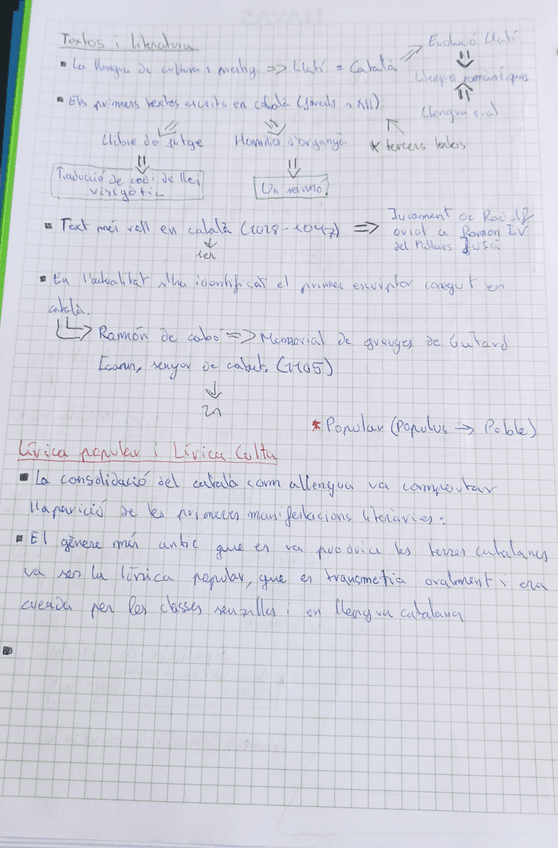 Textos i literatura
Evolució Llatí
▪ La llengua de cultura i prestig. => Llatí = Català
Llengües romàntiques
▪ Els primers textos escrits en català (finals s XII)
Llengua oral
Llibre de jutge Homilies d'organyà * tercers textos
Traducció de codi de llei visigòtic
Un sermó
▪ Text més vell en català (1028-1047) => Jurament de
a Ramon IV
del Pallars Jussà
1er
▪ En l'actualitat s'ha identificat el primer escriptor conegut en
català.
Ramón de cabó => Memorial de greuges de Guitard
Isarn, senyor de cabuts (1105)
2n
* Popular (Populus => Poble)
Lírica popular i Lírica Culta
▪ La consolidació del català com allengua va comportar
l'aparició de les primeres manifestacions literàries.
▪ El gènere més antic que es va produir les terres catalanes
va ser la lírica popular, que es transmetia oralment i era
creada per les classes senzilles i en llengua catalana